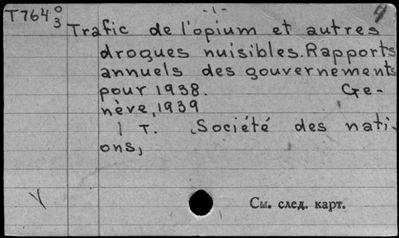 T764 0/3
-1-
4
Trafic de l'opium et autres
drogues nuisibles. Rapports
annuels des gouvernements
pour 1938. Ge-
nève, 1939
1 т. Société des nati-
ons,
См. след. карт.